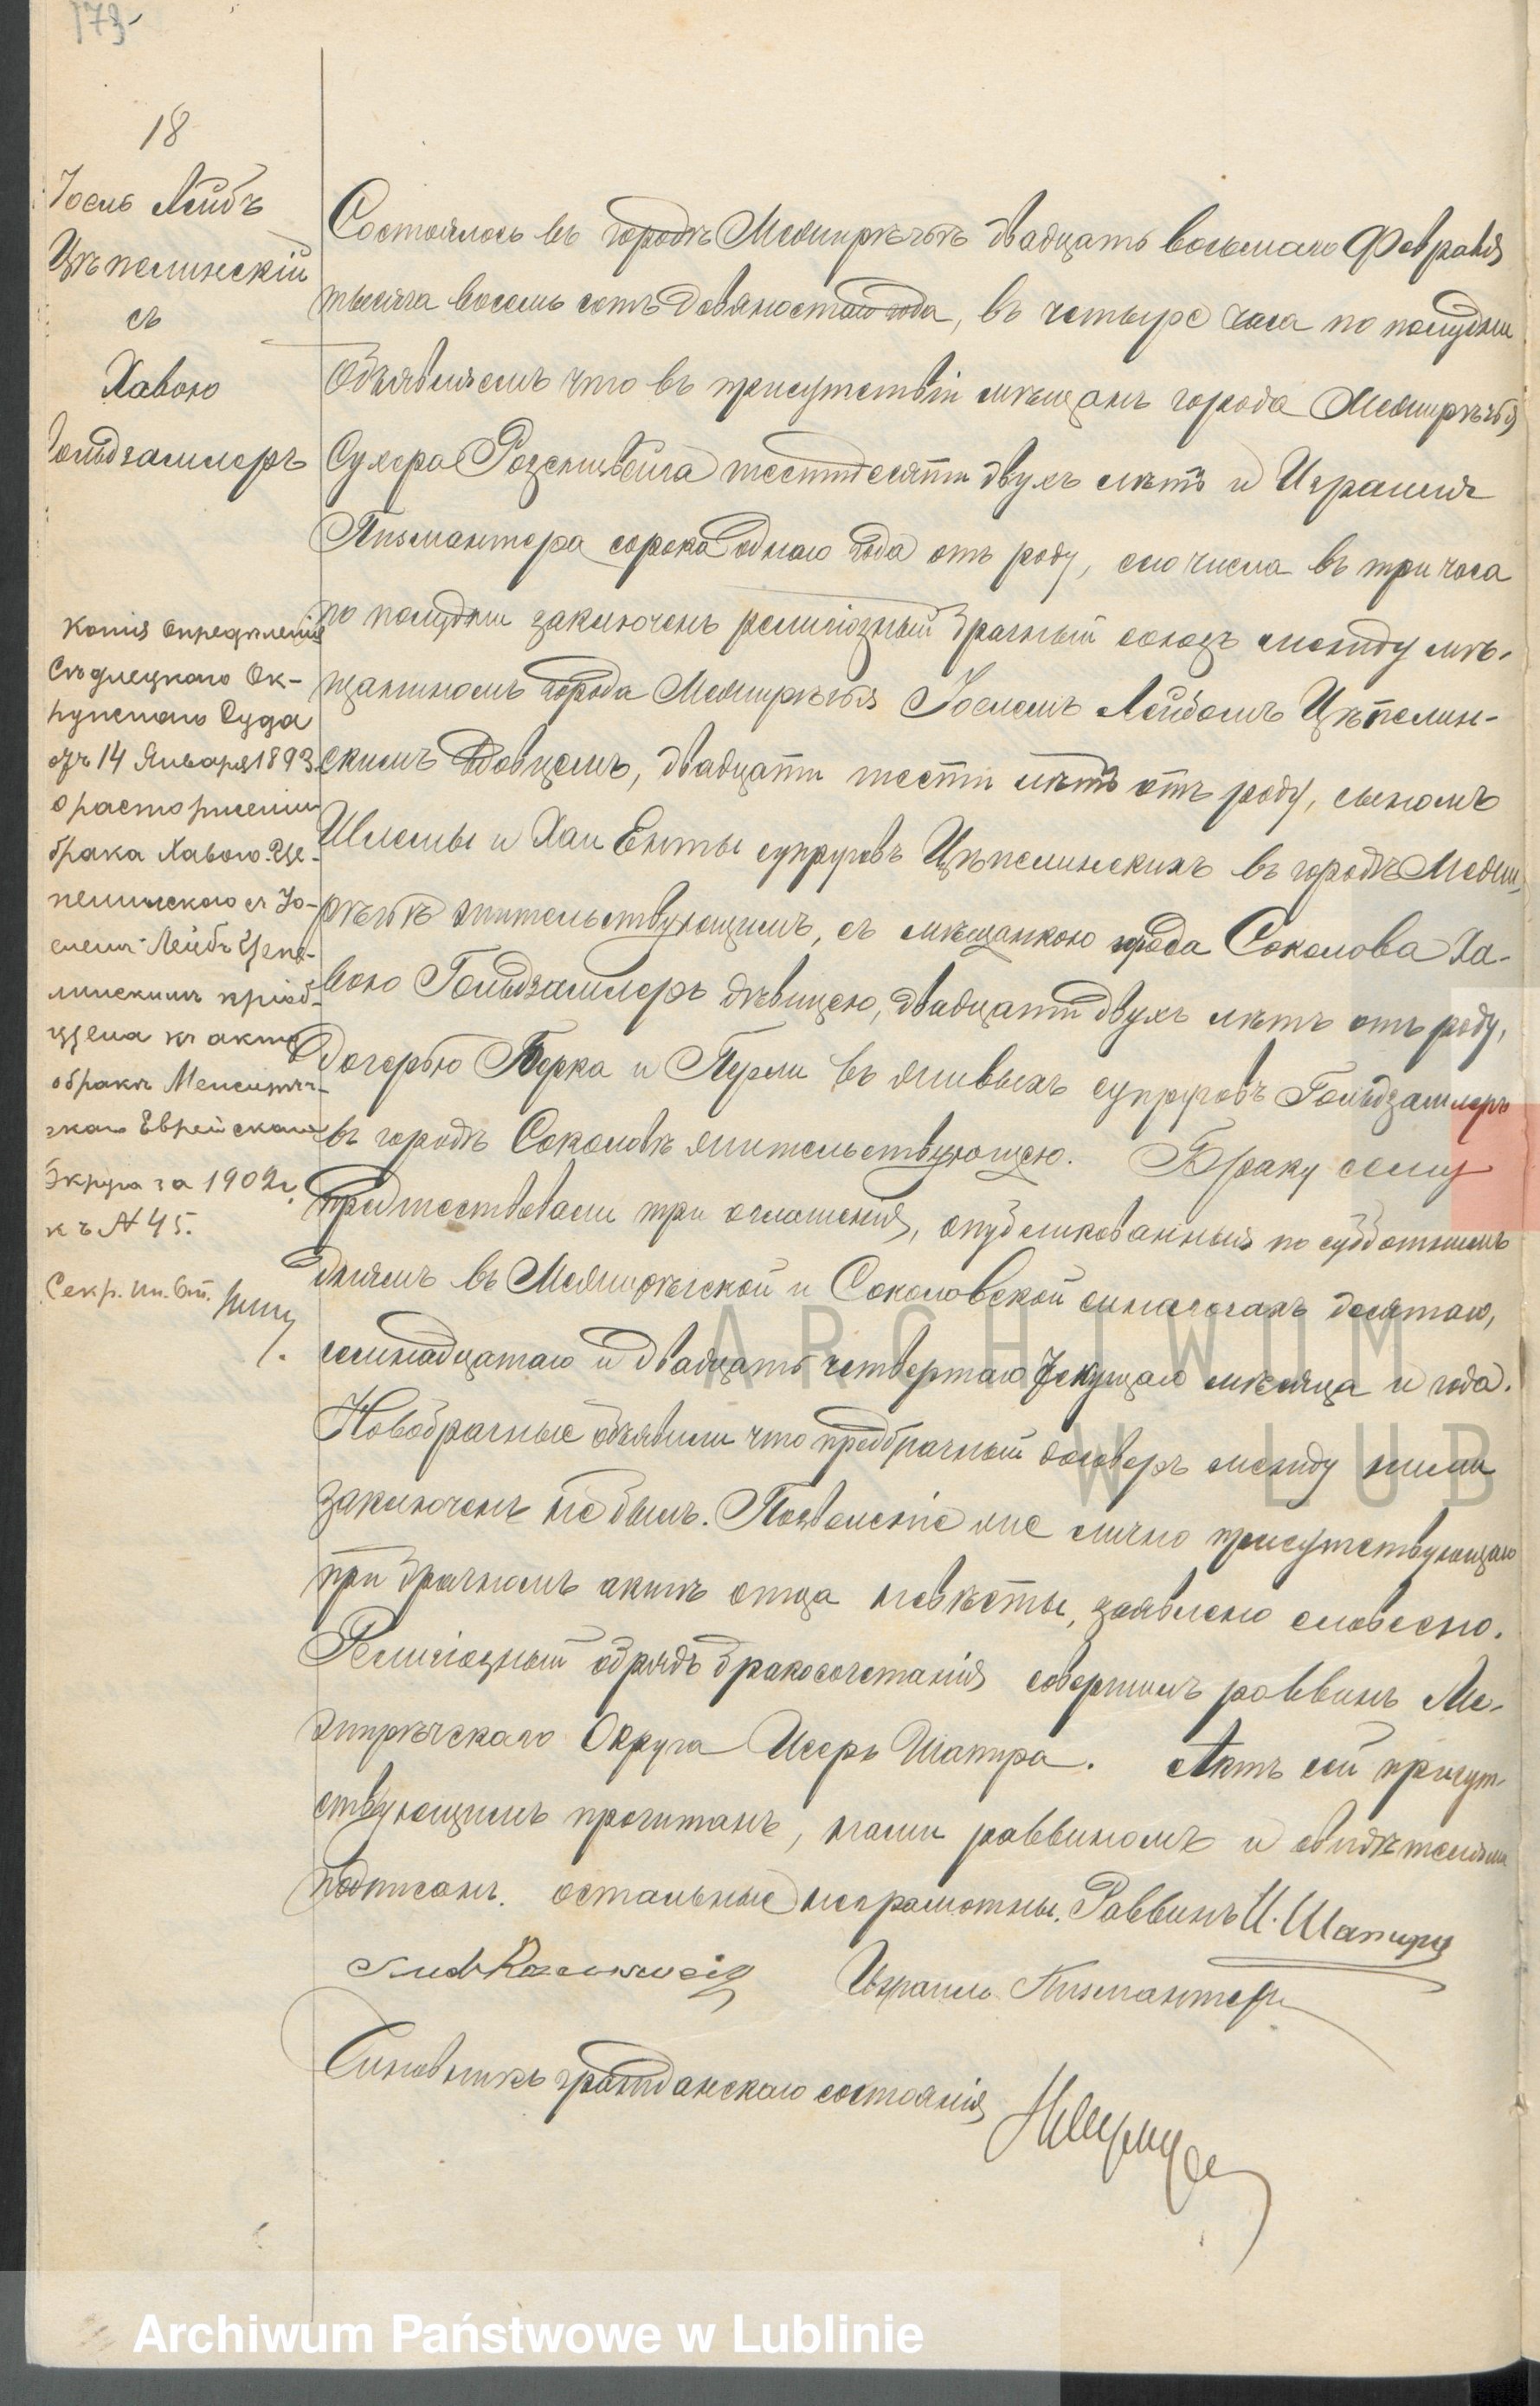 173
18
Іосль Лейбъ
Цѣпелинскій
съ
Хавою
Гольдзамлеръ
Копія опредѣленія
Сѣдлецкаго Ок-
ружнаго Суда
отъ 14 Января 1893
о расторженіи
брака Хавою Це-
пелинскою съ Іо-
слемъ Лейбъ Цепе-
линскимъ пріоб-
щена къ акту
о бракѣ Межирѣч-
скаго Еврейскаго
Округа за 1902 г.
къ № 45.
Секр.
Состоялось въ городѣ Межирѣчьѣ двадцать восьмаго Февраля
тысяча восемь сотъ девяностаго года, въ четыре часа по полудни
Объявляемъ что въ присутствіи мѣщанъ города Межирѣчья
Сухера Розенцвейга шестидесяти двухъ лѣтъ и Израиля
Писмантера сорока однаго года отъ роду, сего числа въ три часа
по полудни заключенъ религіозный брачный союзъ между мѣ-
щаниномъ города Межирѣчья Іоселемъ Лейбомъ Цѣпелин-
скимъ вдовцемъ, двадцати шести лѣтъ отъ роду, сыномъ
Шлемы и Хаи Енты супруговъ Цѣпелинскихъ въ городѣ Межи-
рѣчьѣ жительствующимъ, съ мѣщанкою города Соколова Ха-
вою Гольдзамлеръ дѣвицею, двадцати двухъ лѣтъ отъ роду,
дочерью Берка и Перли въ живыхъ супруговъ Гольдзамлеръ
въ городѣ Соколовѣ жительствующею. Браку сему
предшествовали три оглашенія, опубликованныя по субботнимъ
днямъ въ Межирѣчской и Соколовской синагогахъ десятаго,
семнадцатаго и двадцать четвертаго текущаго мѣсяца и года.
Новобрачные объявили что предбрачный договоръ между ними
заключенъ не былъ. Позволеніе же лично присутствующаго
при брачномъ актѣ отца невѣсты, заявлено словесно.
Религіозный обрядъ бракосочетанія совершилъ раввинъ Ме-
жирѣчскаго Округа Исеръ Шапира. Актъ сей присут-
ствующимъ прочитанъ, нами раввиномъ и свидѣтелями
подписанъ. остальные неграмотны. Раввинъ И. Шапира
Израиль Писмантеръ
Чиновникъ гражданскаго состоянія
ARCHIWUM
W LUB
Archiwum Państwowe w Lublinie